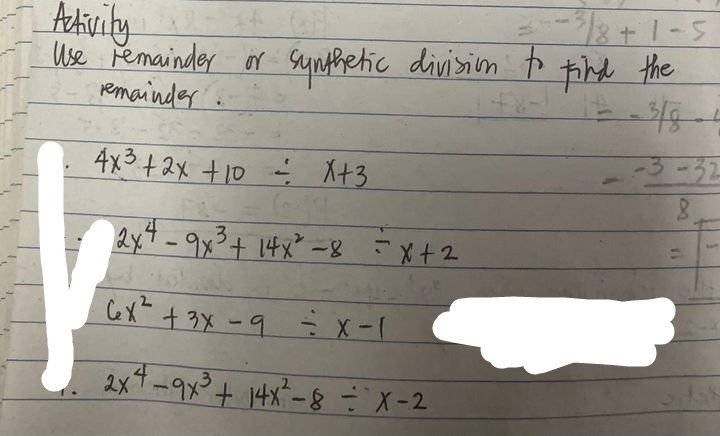 Activity
Use remainder or synthetic division to find the
remainder.
4x³ + 2x + 10 ÷ x+3
2x⁴ - 9x³ + 14x² - 8 ÷ x+2
6x² + 3x - 9 ÷ x-1
2x⁴ - 9x³ + 14x² - 8 ÷ x-2
= -3/8 + 1 - 5
= -3/8 -
-3 - 32
8